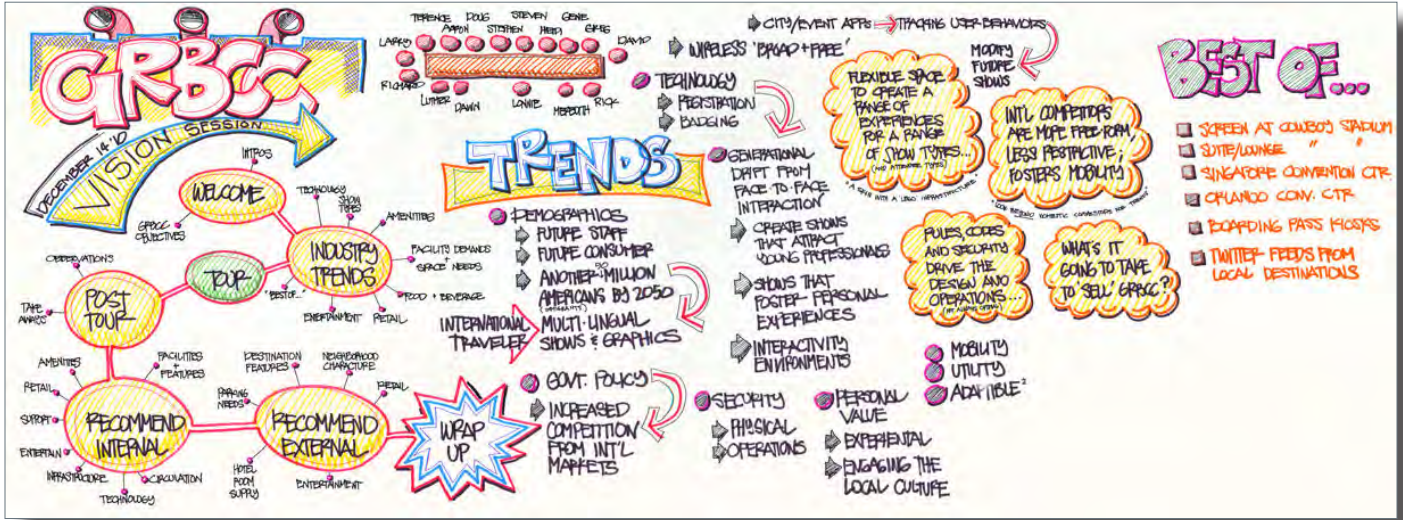 GRBCC
DECEMBER 14 '10
VISION SESSION
INTROS
WELCOME
GRBCC
OBJECTIVES
TECHNOLOGY
SHOW
TYPES
AMENITIES
INDUSTRY
TRENDS
FACILITY DEMANDS
+
SPACE NEEDS
FOOD + BEVERAGE
RETAIL
ENTERTAINMENT
"BEST OF..."
TOUR
OBSERVATIONS
POST
TOUR
TAKE
AWAYS
AMENITIES
FACILITIES
+
FEATURES
RETAIL
SUPPORT
RECOMMEND
INTERNAL
ENTERTAIN
INFRASTRUCTURE
TECHNOLOGY
CIRCULATION
DESTINATION
FEATURES
NEIGHBORHOOD
CHARACTURE
PARKING
NEEDS
RETAIL
RECOMMEND
EXTERNAL
HOTEL
ROOM
SUPPLY
ENTERTAINMENT
WRAP
UP
TERENCE
DOUG
STEVEN
GENE
AARON
STEPHEN
HEIDI
GREG
LARRY
DAVID
RICHARD
LUTHER
DAWN
LONNIE
MEREDITH
RICK
TRENDS
DEMOGRAPHICS
FUTURE STAFF
FUTURE CONSUMER
ANOTHER MILLION
AMERICANS BY 2050
INTERNATIONAL
TRAVELER
MULTI-LINGUAL
SHOWS & GRAPHICS
GOVT. POLICY
INCREASED
COMPETITION
FROM INT'L
MARKETS
CITY/EVENT APPS
TRACKING USER BEHAVIORS
MODIFY
FUTURE
SHOWS
WIRELESS 'BROAD + FREE'
TECHNOLOGY
REGISTRATION
BADGING
GENERATIONAL
DRIFT FROM
FACE-TO-FACE
INTERACTION
CREATE SHOWS
THAT ATTRACT
YOUNG PROFESSIONALS
SHOWS THAT
FOSTER PERSONAL
EXPERIENCES
INTERACTIVITY
ENVIRONMENTS
SECURITY
PHYSICAL
OPERATIONS
PERSONAL
VALUE
EXPERIENTAL
ENGAGING THE
LOCAL CULTURE
MOBILITY
UTILITY
ADAPTIBLE²
FLEXIBLE SPACE
TO CREATE A
RANGE OF
EXPERIENCES
FOR A RANGE
OF SHOW TYPES...
(AND ATTENDEE TYPES)
INT'L COMPETITORS
ARE MORE FREE-FORM
LESS RESTRICTIVE;
FOSTERS MOBILITY
RULES, CODES
AND SECURITY
DRIVE THE
DESIGN AND
OPERATIONS...
WHAT'S IT
GOING TO TAKE
TO 'SELL' GRBCC?
BEST OF...
SCREEN AT COWBOY STADIUM
SUITE/LOUNGE " "
SINGAPORE CONVENTION CTR.
ORLANDO CONV. CTR
BOARDING PASS KIOSKS
TWITTER FEEDS FROM
LOCAL DESTINATIONS